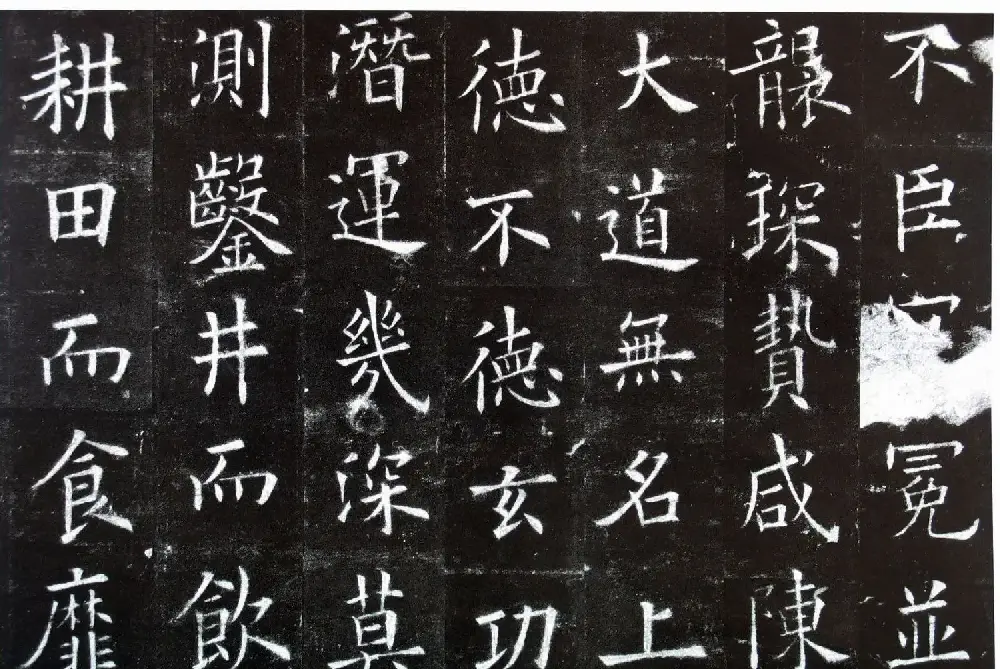 不臣冕並
琛贄咸陳
大道無名上
德不德玄功
潛運幾深莫
測鑿井而飲
耕田而食靡